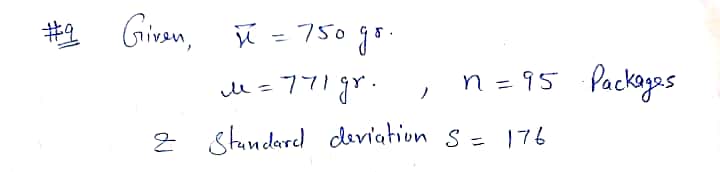 #9 Given, x̄ = 750 gr.
μ = 771 gr. , n = 95 Packages
& Standard deviation S = 176